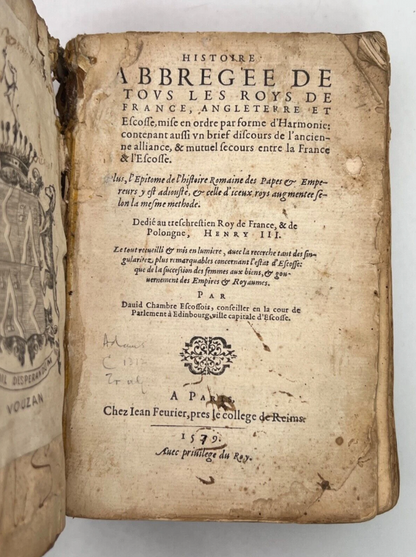 HISTOIRE
ABBREGEE DE
TOVS LES ROYS DE
FRANCE, ANGLETERRE ET
Escosse, mise en ordre par forme d'Harmonie:
contenant aussi vn brief discours de l'ancien-
ne alliance, & mutuel secours entre la France
& l'Escosse.
Plus, l'Epitome de l'histoire Romaine des Papes & Empe-
reurs y est adiousté, & celle d'iceux roys augmentee se-
lon la mesme methode.
Dedié au treschrestien Roy de France, & de
Polongne, HENRY III.
Le tout recueilli & mis en lumiere, auec la recerche tant des sin-
gularitez, plus remarquables concernant l'estat d'Escosse:
que de la succession des femmes aux biens, & gou-
uernement des Empires & Royaumes.
PAR
Dauid Chambre Escossois, conseiller en la cour de
Parlement à Edinbourg, ville capitale d'Escosse.
Adams
C 1312
A PARIS
Chez Iean Feurier, pres le college de Reims.
1579.
Auec priuilege du Roy.
DESPERANDUM
VOUZAN